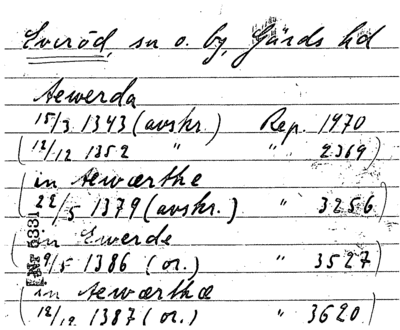 Everöd, sn o. by, Gärds hd
Aewerda
15/3 1343 (avskr.) Rep. 1970
(12/12 1352 " " 2369)
(in Aewærthe
22/5 1379 (avskr.) " 3256)
(in Ewerde
9/5 1386 (or.) " 3527)
(in Aewærthæ
12/12 1387 (or.) " 3620)
5331